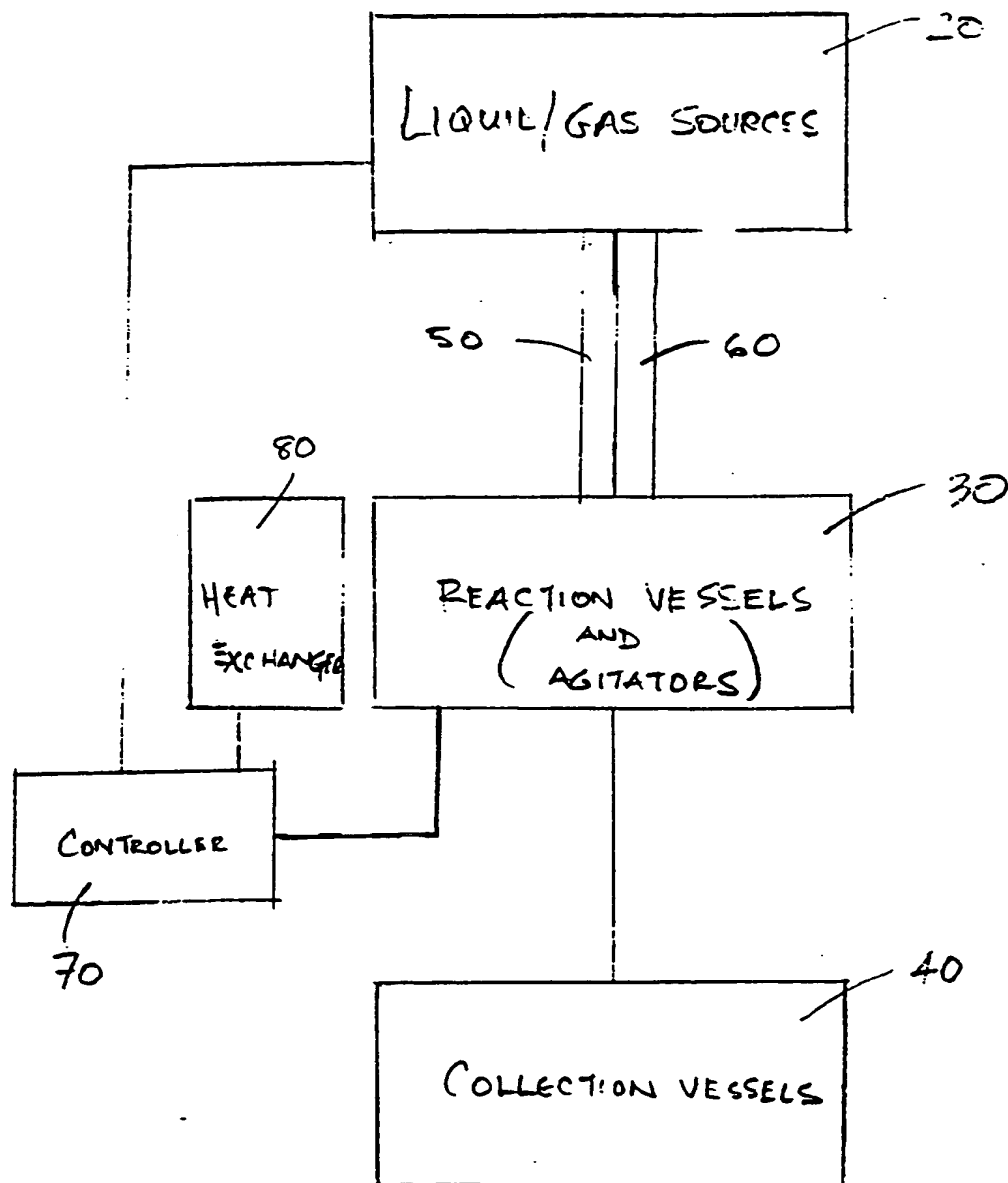 20
LIQUIL/GAS SOURCES
50
60
80
30
HEAT
EXCHANGER
REACTION VESSELS
(AND
AGITATORS)
CONTROLLER
70
40
COLLECTION VESSELS